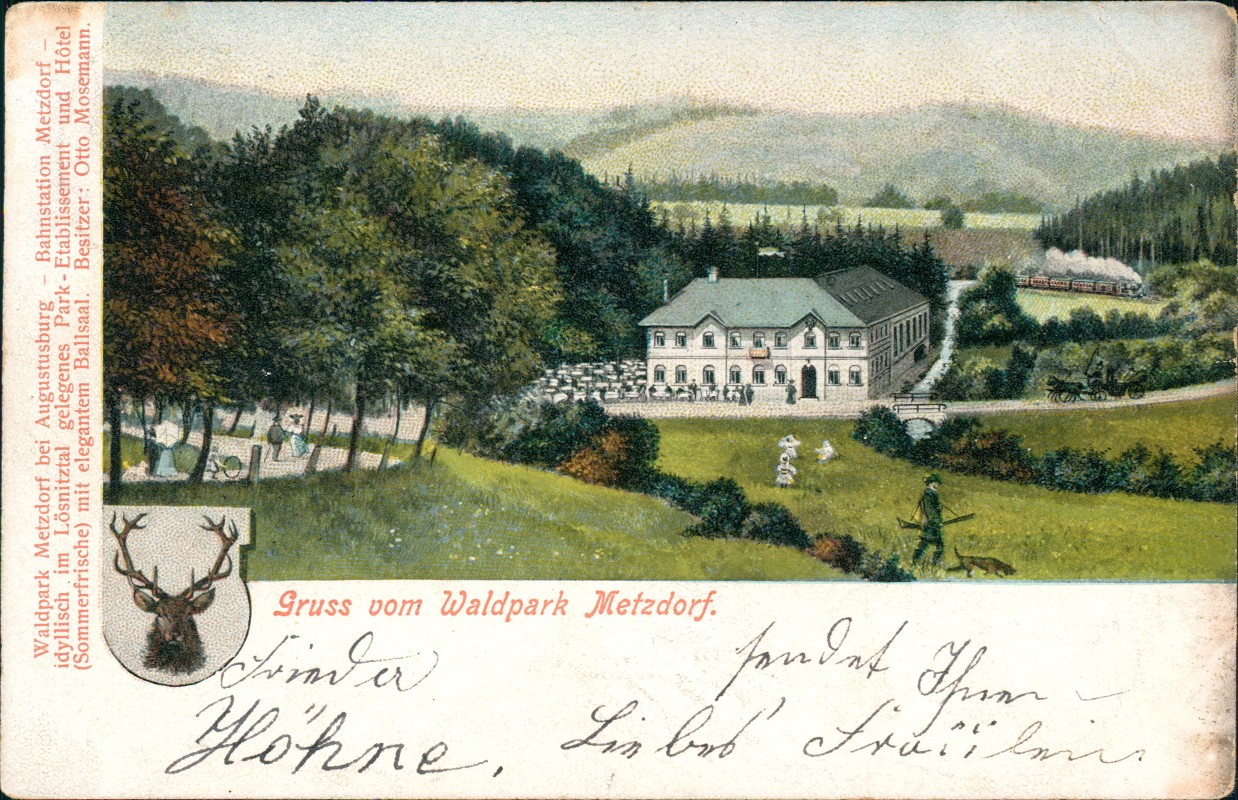 Waldpark Metzdorf bei Augustusburg – Bahnstation Metzdorf –
idyllisch im Lösnitztal gelegenes Park-Etablissement und Hôtel
(Sommerfrische) mit elegantem Ballsaal. Besitzer: Otto Mosemann.
Gruss vom Waldpark Metzdorf.
Frieder sendet Ihnen –
Höhne, Liebes Fräulein